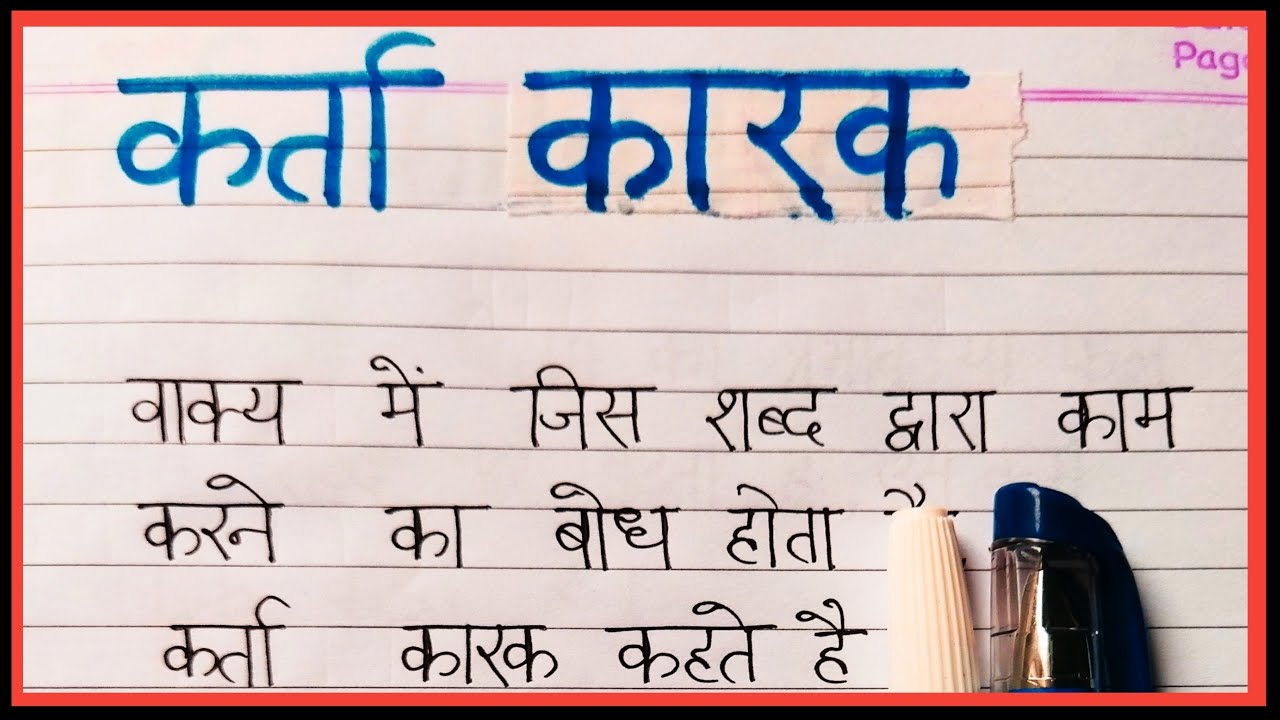 Page
कर्ता कारक
वाक्य में जिस शब्द द्वारा काम
करने का बोध होता
कर्ता कारक कहते है